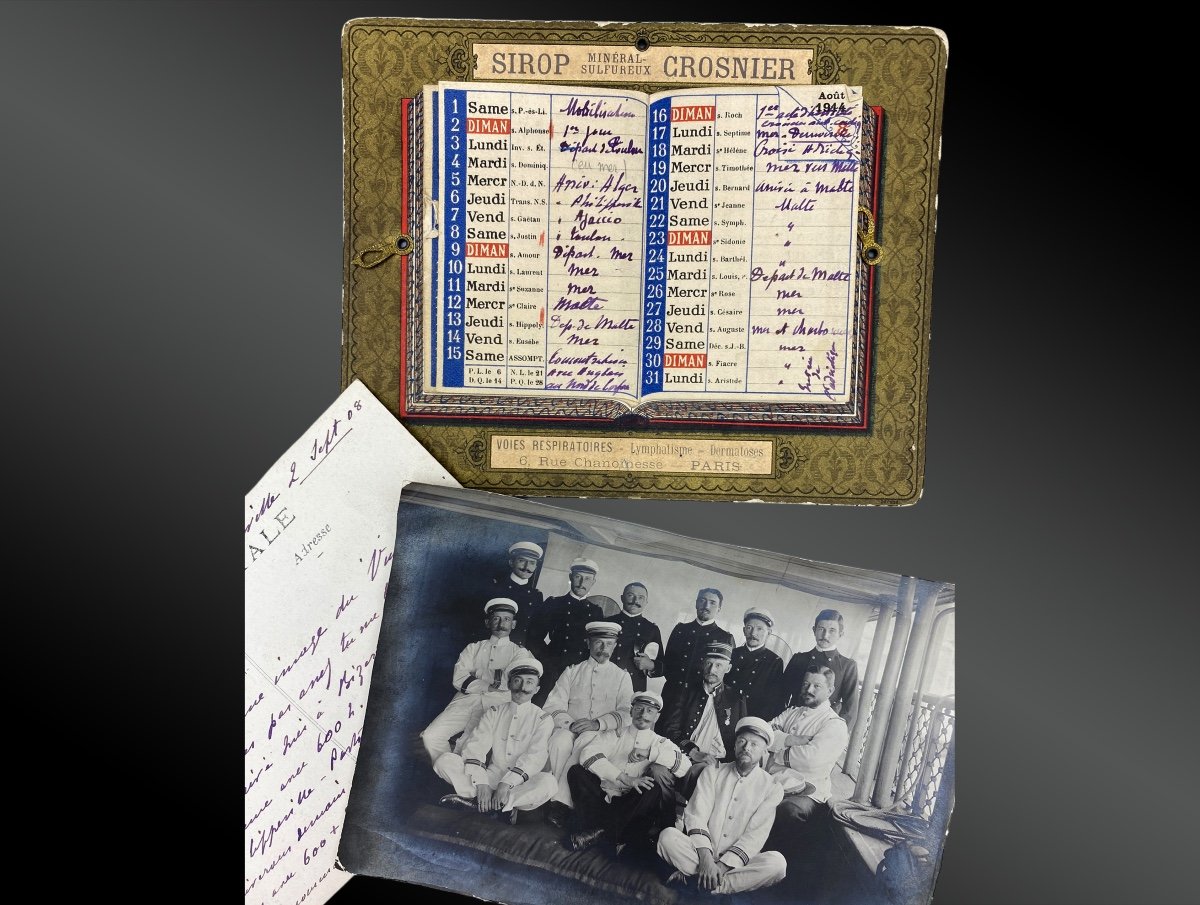 SIROP MINÉRAL-SULFUREUX CROSNIER
Août
1914
1 Same s. P.-ès-Li. Mobilisation
2 DIMAN s. Alphonse 1er jour
3 Lundi Inv. s. Ét. Départ de Toulon
4 Mardi s. Dominiq. (en mer)
5 Mercr N.-D. d. N. Arriv. Alger
6 Jeudi Trans. N.S. " Philippeville
7 Vend s. Gaëtan " Ajaccio
8 Same s. Justin " Toulon
9 DIMAN s. Amour Départ. Mer
10 Lundi s. Laurent Mer
11 Mardi ste Suzanne mer
12 Mercr ste Claire Malte
13 Jeudi s. Hippoly. Dep. de Malte
14 Vend s. Eusèbe Mer
15 Same ASSOMPT. Concentration
P. L. le 6 N. L. le 21 avec Anglais
D. Q. le 14 P. Q. le 28 au Nord de Corfou
16 DIMAN s. Roch
17 Lundi s. Septime mer
18 Mardi ste Hélène Croisi
19 Mercr s. Timothée mer vers Malte
20 Jeudi s. Bernard arrivée à Malte
21 Vend ste Jeanne Malte
22 Same s. Symph. "
23 DIMAN ste Sidonie "
24 Lundi s. Barthél. "
25 Mardi s. Louis, r. Départ de Malte
26 Mercr ste Rose mer
27 Jeudi s. Césaire mer
28 Vend s. Auguste mer et
29 Same Déc. s.J.-B. mer
30 DIMAN s. Fiacre "
31 Lundi s. Aristide "
VOIES RESPIRATOIRES - Lymphatisme - Dermatoses
6, Rue Chanoinesse - PARIS
ville 2 Sept 08
ALE
Adresse
image du
pas assez tu me
hier à
avec 600
demain
600 +